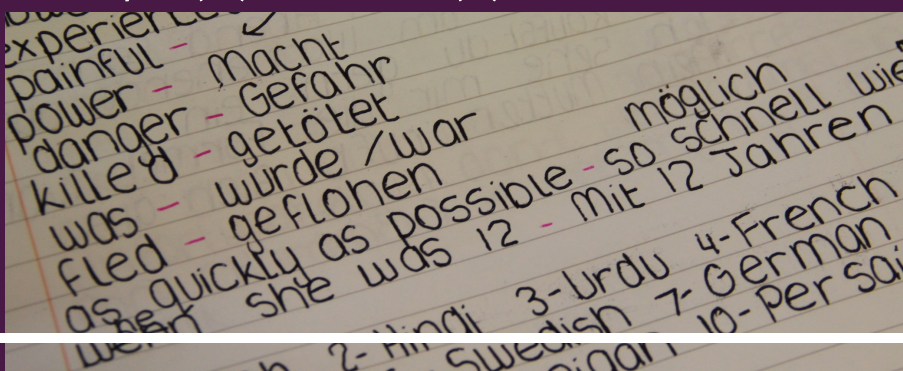 painful -
power - Macht
danger - Gefahr
killed - getötet
was - wurde /war
fled - geflohen
möglich
as quickly as possible - so schnell wie
when she was 12 - mit 12 Jahren
2-Hindi 3-Urdu 4-French
Swedish 7-German
10-Persai